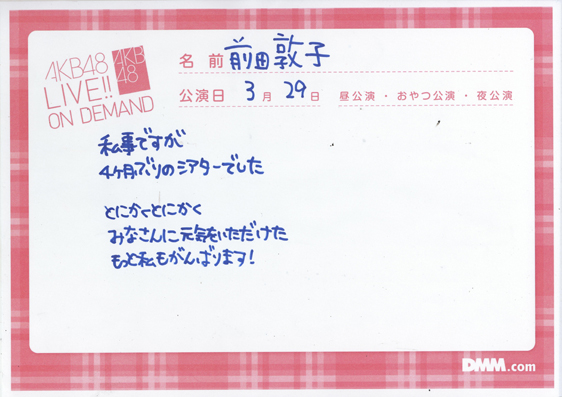 AKB48
LIVE!!
ON DEMAND
AKB
48
名 前 前田敦子
公演日 3月29日 昼公演・おやつ公演・夜公演
私事ですが
4ヶ月ぶりのシアターでした
とにかくとにかく
みなさんに元気をいただけた
もっと私もがんばります!
DMM.com